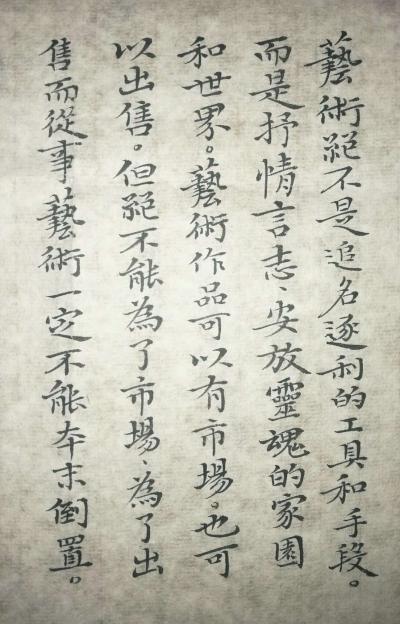 藝術絕不是追名逐利的工具和手段。
而是抒情言志、安放靈魂的家園
和世界。藝術作品可以有市場。也可
以出售。但絕不能為了市場、為了出
售而從事藝術一定不能本末倒置。